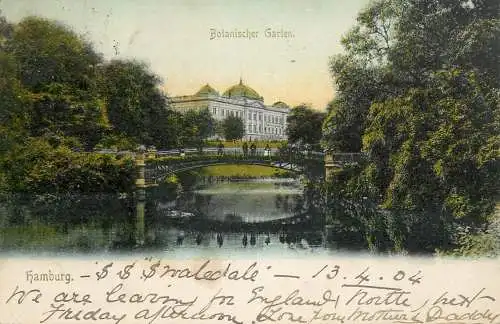 Botanischer Garten.
Hamburg. - "S S Swaledale" - 13.4.04
We are leaving for England, North, next
Friday afternoon. Love from Mother & Daddy